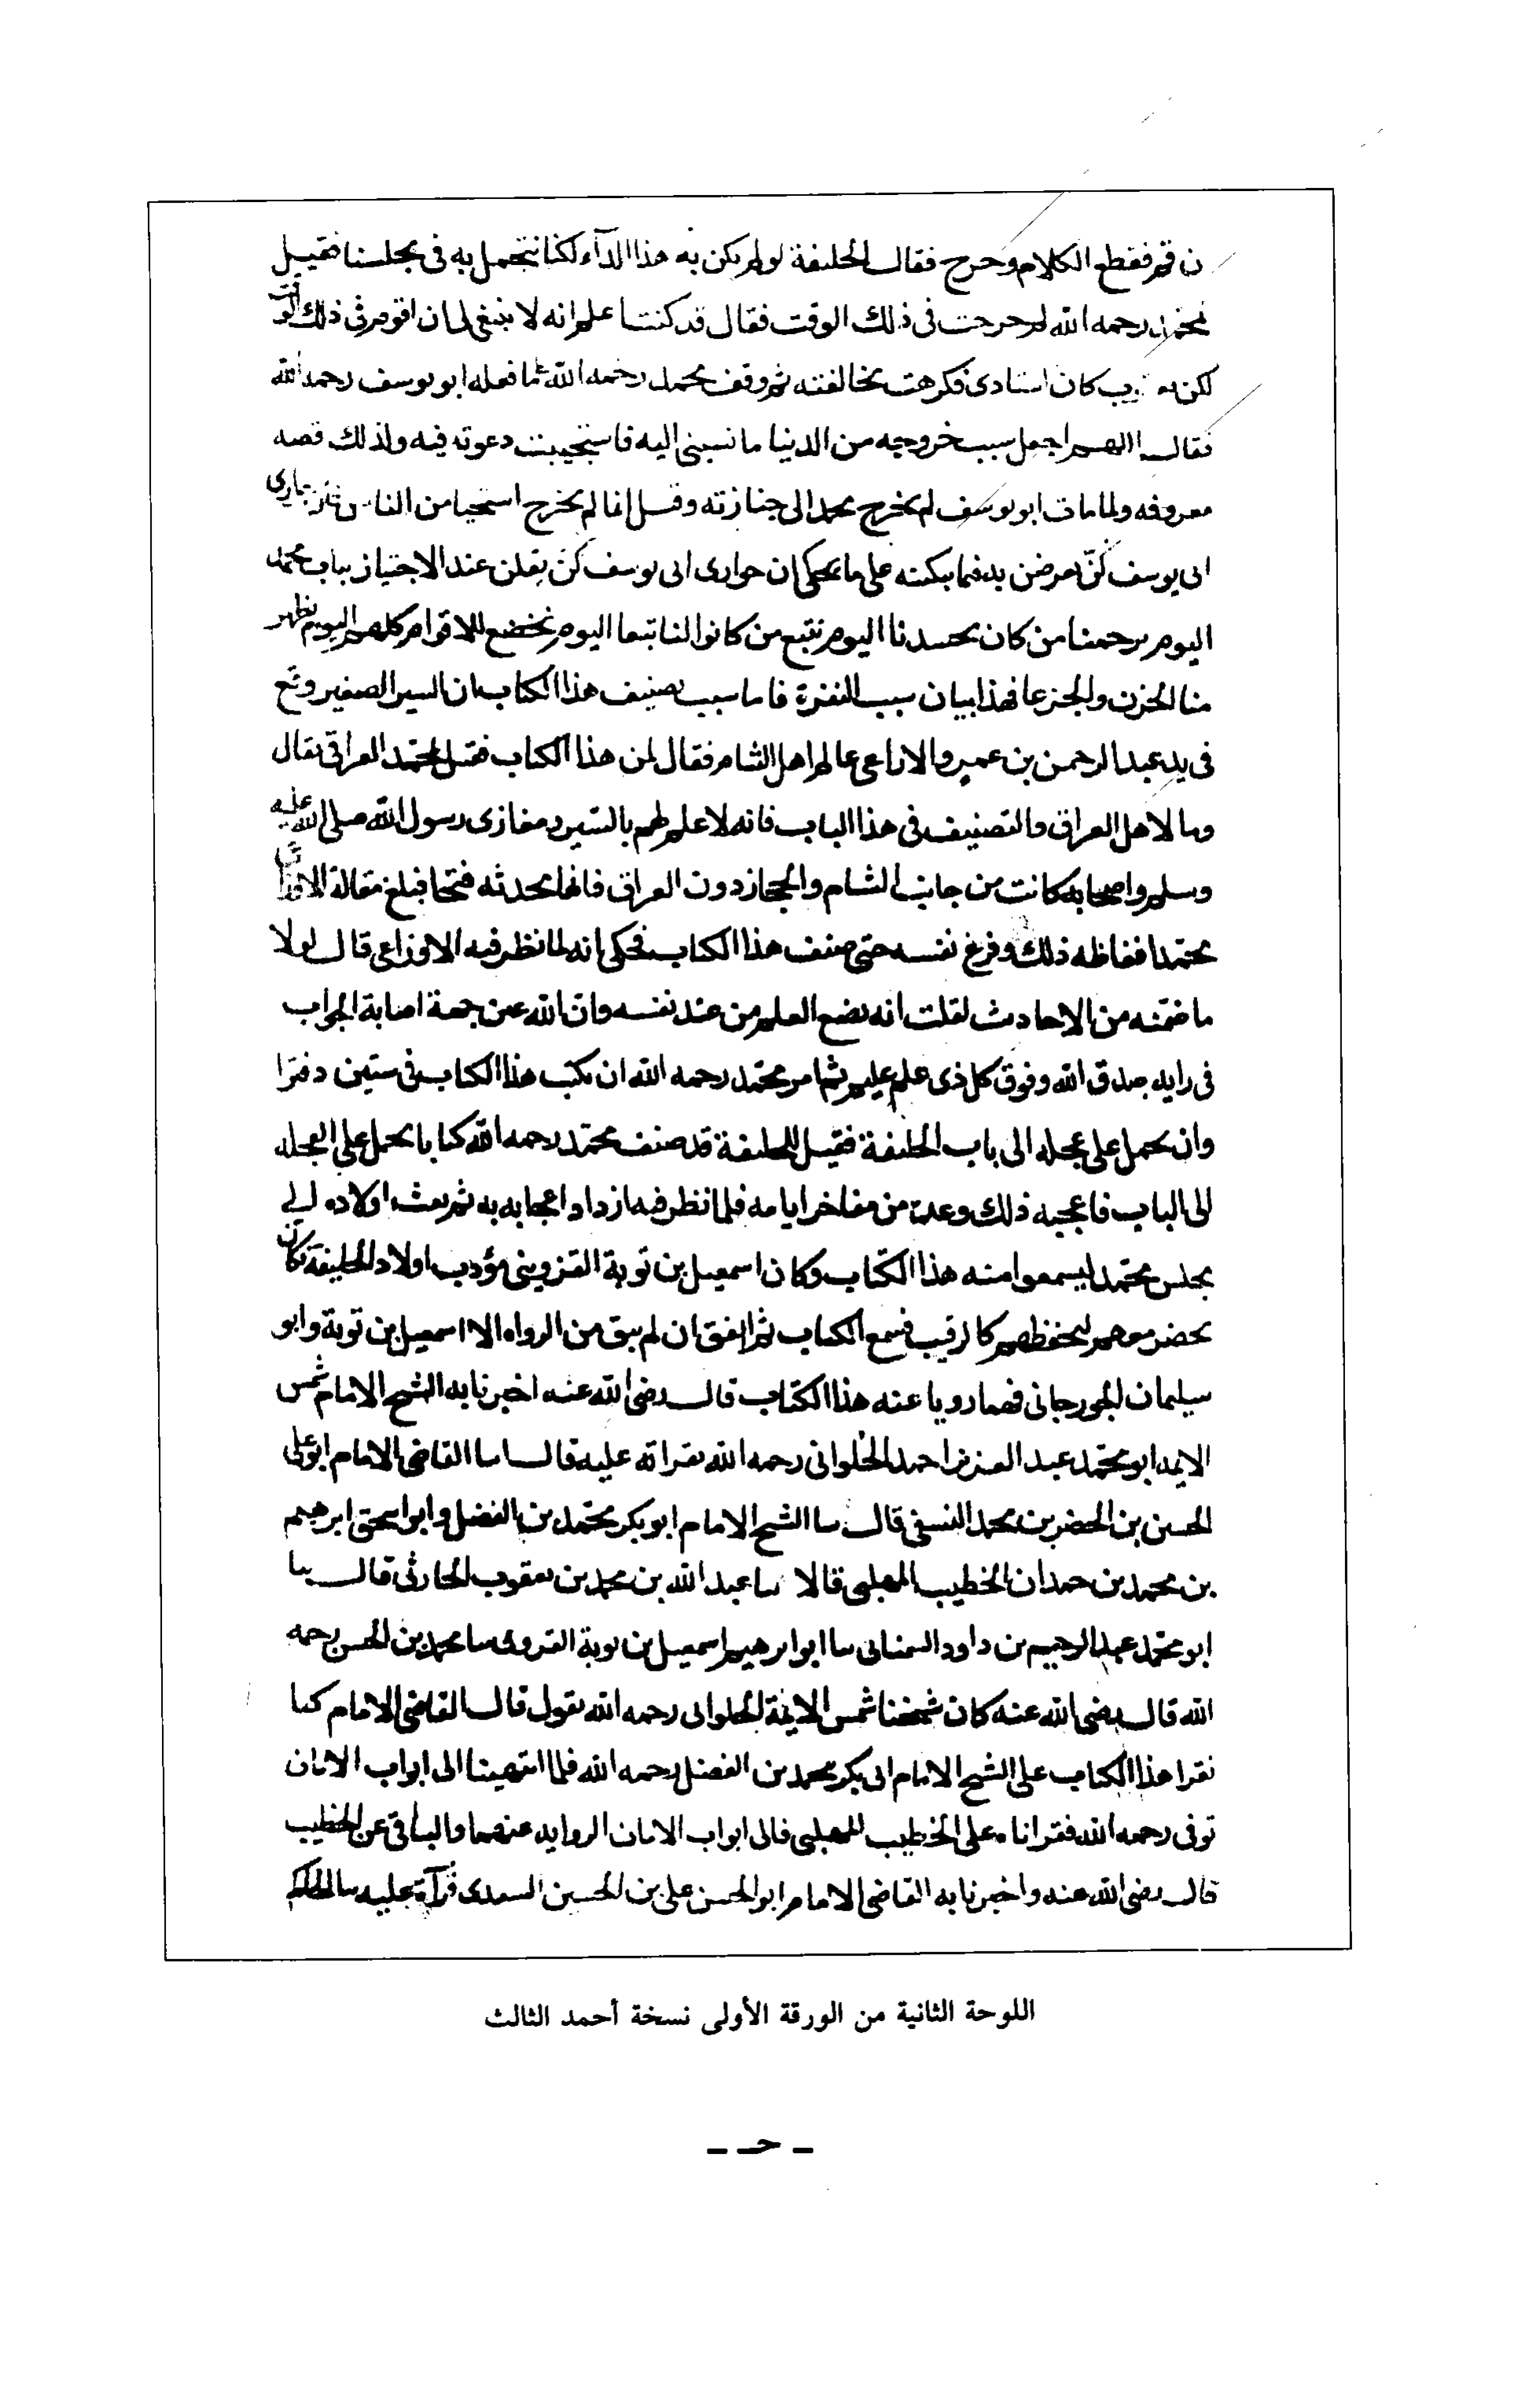 ن قم فقطع الكلام وخرج فقال الخليفة لو لم يكن به هذا الدآء لكنا نتجمل به فى مجلسنا فقيل
لمحمد رحمه الله لم خرجت فى ذلك الوقت فقال قد كنت اعلم انه لا ينبغى لى ان اقوم فى ذلك الوقت
لكن كان استادى فكرهت مخالفته ثم وقف محمد رحمه الله على ما فعله ابو يوسف رحمه الله
فقال اللهم اجعل سبب خروجه من الدنيا ما نسبنى اليه فاستجيبت دعوته فيه ولذلك قصه
معروفه ولما مات ابو يوسف لم يخرج محمد الى جنازته وقيل انما لم يخرج استحيا من الناس فان جوارى
ابى يوسف كنّ يعرضن به فيما يبكينه على ما يحكى ان جوارى ابى يوسف كن يقلن عند الاجتياز بباب محمد
اليوم يرحمنا من كان يحسدنا اليوم نتبع من كانوا لنا تبعا اليوم نخضع للاقوام كلهم اليوم نظهر
منا الحزن والجزعا فهذا بيان سبب النفرة فاما سبب تصنيف هذا الكتاب ان السير الصغير وقع
فى يد عبد الرحمن بن عمرو الاوزاعى عالم اهل الشام فقال لمن هذا الكتاب فقيل لمحمد العراقى فقال
وما لاهل العراق والتصنيف فى هذا الباب فانه لا علم لهم بالسير ومغازى رسول الله صلى الله عليه
وسلم واصحابه كانت من جانب الشام والحجاز دون العراق فانها محدثه فتحا فبلغ مقالة الاوزاعى
محمدا فغاظه ذلك وفرغ نفسه حتى صنف هذا الكتاب فحكى انه لما نظر فيه الاوزاعى قال لولا
ما ضمنه من الاحاديث لقلت انه يضع العلم من عند نفسه وان الله عين جهة اصابة الجواب
فى رايه صدق الله وفوق كل ذى علم عليم ثم امر محمد رحمه الله ان يكتب هذا الكتاب فى ستين دفترا
وان يحمل على عجله الى باب الخليفة فقيل للخليفة قد صنف محمد رحمه الله كتابا يحمل على العجله
الى الباب فاعجبه ذلك وعده من مفاخر ايامه فلما نظر فيه ازداد اعجابه به ثم بعث اولاده الى
مجلس محمد ليسمعوا منه هذا الكتاب وكان اسمعيل بن توبة القزوينى مؤدب اولاد الخليفة فكان
يحضر معهم ليحفظهم كالرقيب فسمع الكتاب ثم اتفق ان لم يبق من الرواه الا اسمعيل بن توبة وابو
سليمان الجورجانى فهما رويا عنه هذا الكتاب قال رضى الله عنه اخبرنا به الشيخ الامام شمس
الايمه ابو محمد عبد العزيز بن احمد الحلوانى رحمه الله بقراته عليه قال سا القاضى الامام ابو على
الحسن بن الحضر بن محمد النسفى قال سا الشيخ الامام ابو بكر محمد بن الفضل وابو اسحق ابرهيم
بن محمد بن حمدان الخطيب المهلبى قالا سا عبد الله بن محمد بن يعقوب الحارثى قال سا
ابو محمد عبد الرحيم بن داود السمنانى سا ابو ابرهيم اسمعيل بن توبة القزوينى سا محمد بن الحسن رحمه
الله قال رضى الله عنه كان شيخنا شمس الايمة الحلوانى رحمه الله يقول قال القاضى الامام كنا
نقرا هذا الكتاب على الشيخ الامام ابى بكر محمد بن الفضل رحمه الله فلما انتهينا الى ابواب الامان
توفى رحمه الله فقراناه على الخطيب المهلبى فالى ابواب الامان الروايه عنهما والباقى عن الخطيب
قال رضى الله عنه واخبرنا به القاضى الامام ابو الحسن على بن الحسين السعدى قرآة عليه سا الحاكم
اللوحة الثانية من الورقة الأولى نسخة أحمد الثالث
- حـ -